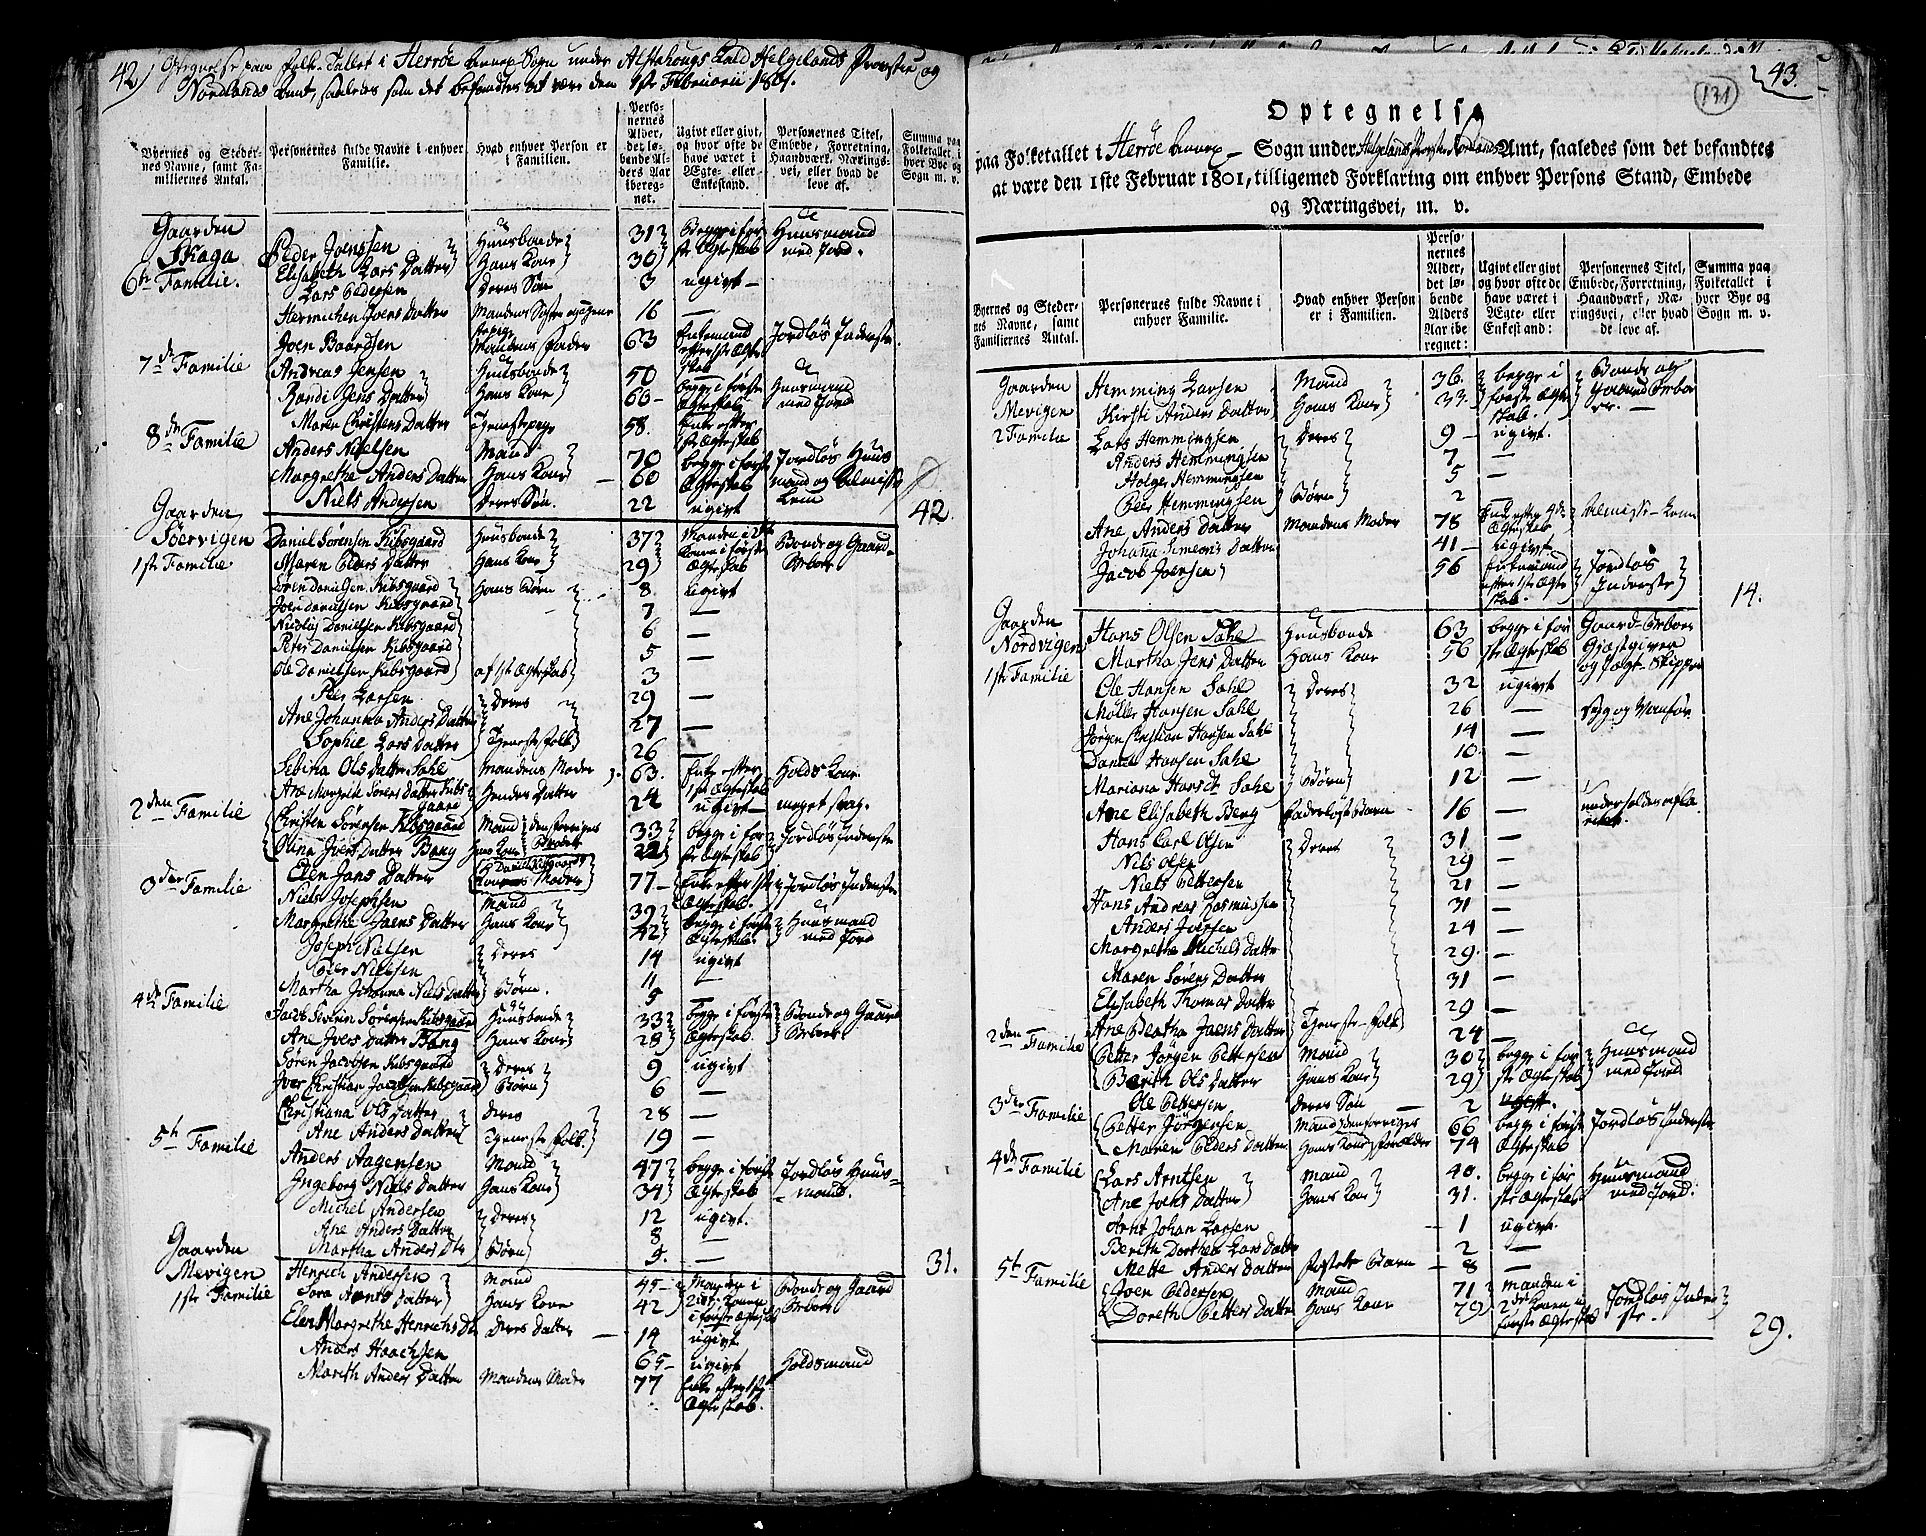 42) Optegnelse paa Folke-Tallet i Herrøe Annex Sogn under Alstahougs Kald Helgelands Provstie og
Nordlands Amt, saaledes som det befandtes at være den 1ste Februarii 1801.
Byernes og Stedernes Navne, samt Familiernes Antal.
Personernes fulde Navne i enhver Familie.
Hvad enhver Person er i Familien.
Personernes Alder, det løbende Alders Aar iberegnet.
Ugivt eller givt, og hvor ofte de have været i Ægte- eller Enkestand.
Personernes Titel, Embede, Forretning, Haandværk, Næringsvei, eller hvad de leve af.
Summa paa Folketallet i hver Bye og Sogn m. v.
Gaarden
Skaga
6te Familie.
Peder Joensen Huusbonde 31 Begge i før- Huusmand
Elisabeth Lars Datter Hans Kone 30 ste Ægteskab med Jord.
Lars Pedersen Deres Søn 3 ugivt —
Hermichen Joens Datter Mandens Søster 16 —
Joen Baardsen Mandens Fader 63 Enkemand efter 1ste Ægteskab Jordløs Inderste
7de Familie
Andreas Jensen Huusbonde 50 begge i første Huusmand
Randi Jens Datter Hans Kone 66 — Ægteskab med Jord
Maren Christens Datter Tjenestepige 58. Enke efter 1ste Ægteskab
8de Familie
Anders Nielsen Mand 70 begge i første Jordløs Huus-
Margrethe Anders Datter Hans Kone — 60 Ægteskab mand og Almisse Lem
Niels Andersen Deres Søn. 22 ugivt
42.
Gaarden
Söervigen
1ste Familie
Daniel Sørensen Kibsgaard Huusbonde 37 Manden i 2det Bonde og Gaard-
Maren Peders Datter Hans Kone 29 Konen i første Ægteskab Beboer
Søren Danielsen Kibsgaard Hans Børn 8. ugivt
Joen Danielsen Kibsgaard 7 —
Nicolai Danielsen Kibsgaard 6 —
Peter Danielsen Kibsgaard 5 —
Ole Danielsen Kibsgaard af 1ste Ægteskab 3
Peer Larsen Deres 29 —
Ane Johanna Anders Datter 27 —
Sophie Lars Datter Tjenestefolk 26 —
Sebina Ols Datter Sahl Mandens Moder 63. Enke efter 1ste Ægteskab Holds Kone
Ane Margrethe Sørens Datter Kibsgaard Hendes Datter 24 ugivt — meget svag.
2den Familie
Christen Sørensen Kibsgaard Mand 33 begge i før- Jordløs Inderste
Olina Ivers Datter Bang Hans Kone 22 ste Ægteskab
Elen Jans Datter Moder 77 — Enke efter 1ste Ægteskab. Jordløs Inderste
3die Familie
Niels Josephsen Mand 39 begge i første Huusmand
Margrethe Joens Datter Hans Kone 42 Ægteskab med Jord
Joseph Nielsen Deres 14 ugivt
Peer Nielsen 11 —
Martha Johanna Niels Datter Børn. 5
4de Familie
Jacob Severin Sørensen Kibsgaard Huusbonde 33 begge i første Bonde og Gaard
Ane Ivers Datter Bang Hans Kone 28 Ægteskab. Beboer
Søren Jacobsen Kibsgaard Deres 9 ugivt
Iver Christian Jacobsen Kibsgaard Børn 6 —
Christiana Ols Datter Deres 28 —
Ane Anders Datter Tjenestefolk. 19 —
5te Familie
Anders Aagensen Mand 47 begge i første Jordløs Huus-
Ingeborg Niels Datter Hans Kone 34 Ægteskab — mand.
Michel Andersen Deres 12 ugivt.
Ane Anders Datter 8 —
Martha Anders Dtr Børn 5. —
31.
Gaarden
Mevigen
1ste Familie
Henrich Andersen Mand 45 — Manden i Bonde og Gaard
Sara Arents Datter Hans Kone 42 2det Konen i første Ægteskab Beboer
Elen Margrethe Henrichs D. Deres Datter — 14 ugivt
Anders Haachsen 65 — ugivt Holdsmand
Marith Anders Datter Mandens Moder 77 Enke efter 1ste Ægteskab.
43.
131
Optegnelse
paa Folketallet i Herrøe Annex — Sogn under Helgelands Provstie Nordlands Amt, saaledes som det befandtes
at være den 1ste Februar 1801, tilligemed Forklaring om enhver Persons Stand, Embede
og Næringsvei, m. v.
Byernes og Stedernes Navne, samt Familiernes Antal.
Personernes fulde Navne i enhver Familie.
Hvad enhver Person er i Familien.
Personernes Alder, det løbende Alders Aar iberegnet:
Ugivt eller givt og hvor ofte de have været i Ægte- eller Enkestand:
Personernes Titel, Embede, Forretning, Haandværk, Næringsvei, eller hvad de leve af.
Summa paa Folketallet i hver Bye og Sogn m. v.
Gaarden
Mevigen
2 Familie
Hemming Larsen Mand 36. begge i Bonde og
Kirsti Anders Datter Hans Kone 33. første Ægteskab. Gaard Beboer. —
Lars Hemmingsen Deres 9 — ugivt.
Anders Hemmingsen 7 —
Holger Hemmingsen 5 —
Peer Hemmingsen Børn 2
Ane Anders Datter Mandens Moder 78 Enke efter 4de Ægteskab Almisse-Lem
Johanna Simeons Datter 41 — ugivt
Jacob Joensen 56 Enkemand efter 1ste Ægteskab. Jordløs Inderste
14.
Gaarden
Nordvigen
1ste Familie
Hans Olsen Sahl Huusbonde 63 begge i før- Gaard-Beboer
Martha Jens Datter Hans Kone 56 ste Ægteskab Gjæstgiver og Jægt-Skipper
Ole Hansen Sahl Deres 32 ugivt
Möller Hansen Sahl 26 — Syg og Vanfør
Jørgen Christian Hansen Sahl 14 —
Daniel Hansen Sahl 10. —
Mariana Hans D. Sahl Børn 12 —
Ane Elisabeth Berg Faderløst Barn 16 — underholdes
Hans Carl Olsen Deres 31 —
Nils Olsen 29 —
Niels Pettersen 21 —
Hans Andreas Rasmussen 31 —
Anders Iversen 24 —
Margrethe Michels Datter 29. —
Maren Sørens Datter 31 —
Elisabeth Thomas Datter 29 —
Ane Bertha Joens Datter Tjeneste-folk 24 —
2den Familie
Petter Jörgen Pettersen Mand 30 begge i før- Huusmand
Berith Ols Datter Hans Kone 29 ste Ægteskab med Jord
Ole Pettersen Deres Søn — 2 ugivt.
3die Familie
Petter Jörgensen Mand denforriges 66 begge i første Jordløs Inderste
Maren Peders Datter Hans Kone Forælder 74 Ægteskab
4de Familie
Lars Arntsen Mand 40. begge i før- Huusmand
Ane Joens Datter Hans Kone 31. ste Ægteskab med Jord.
Arnt Johan Larsen — 1 ugivt.
Berith Dorthea Lars Datter 2 —
Mette Anders Datter Foster Barn — 8 —
5te Familie
Joen Pedersen Mand 71 Manden i Jordløs Inder-
Doreth Petters Datter Hans Kone 79 2det Konen i første Ægteskab ste. —
29.